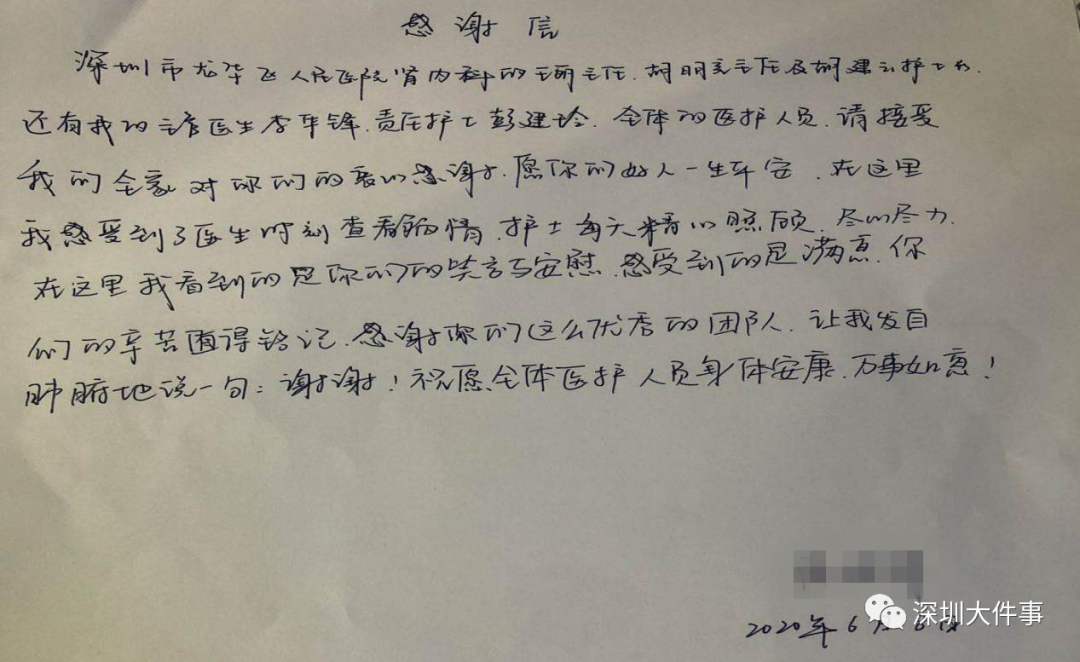 感谢信
深圳市龙华区人民医院肾内科的主任.胡明亮主任及胡建云护士长.
还有我的主管医生李年锋.责任护士彭建玲.全体的医护人员.请接受
我们全家对你们的衷心感谢.愿你们好人一生平安.在这里
我感受到了医生时刻查看病情.护士每天精心照顾.尽心尽力.
在这里我看到的是你们的笑言与安慰.感受到的是满意.你
们的辛苦值得铭记.感谢你们这么优秀的团队.让我发自
肺腑地说一句：谢谢！祝愿全体医护人员身体安康.万事如意！
深圳大件事
2020年6月6日